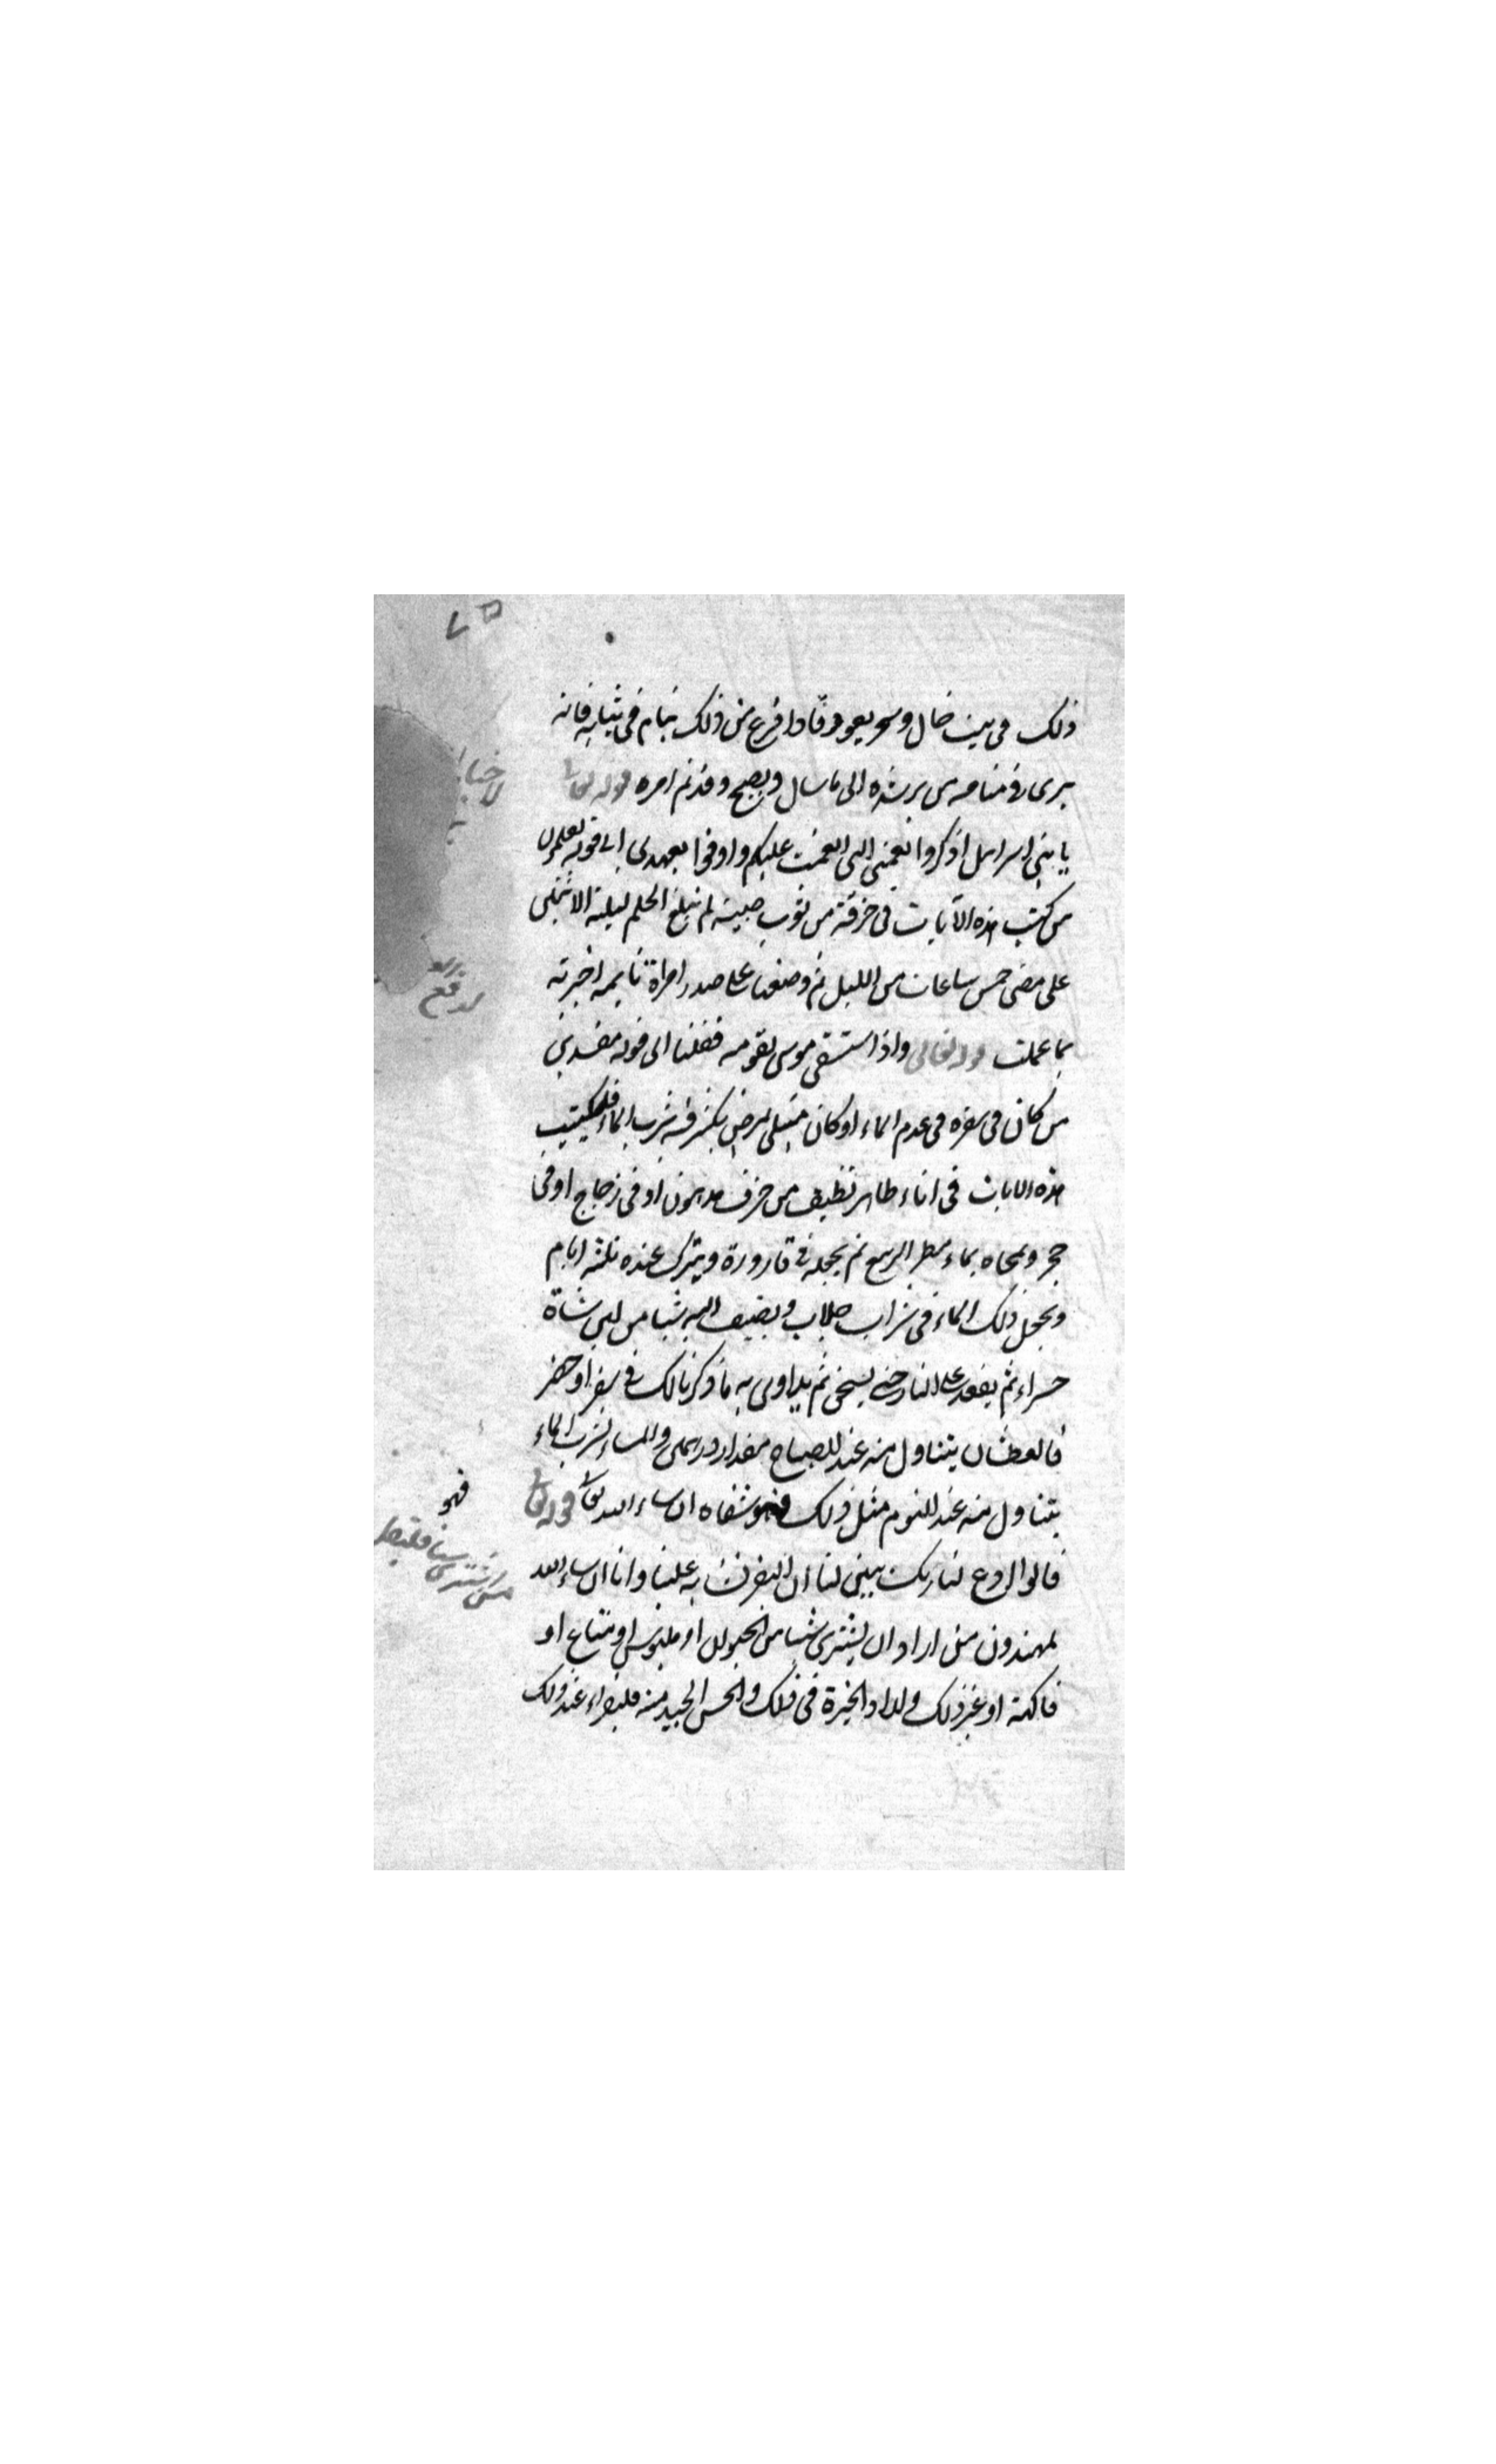 ذلك فى بيت خال وهو يعود فاذا فرغ من ذلك ينام فى ثيابه فانه
يرى فى منامه من يرشده الى ما سال ويصبح وقد تم امره قوله تعالى
يا بنى اسرائيل اذكروا نعمتى التى انعمت عليكم واوفوا بعهدى الى قوله تعلمون
من كتب هذه الآيات فى خرقة من ثوب صبية لم تبلغ الحلم ليلة الاثنين
على مضى خمس ساعات من الليل ثم وضعها على صدر امراة نايمة اخبرته
بما عملت قوله تعالى واذ استسقى موسى لقومه فقلنا الى قوله مفسدين
من كان فى سفره فى عدم الماء او كان مبتلى بمرض يكثر فيه شرب الماء فليكتب
هذه الايات فى اناء طاهر نظيف من خزف مدهون او فى زجاج او فى
حجر ومحاه بماء مطر الربيع ثم يجعله فى قارورة ويترك عنده ثلثة ايام
ويجعل ذلك الماء فى شراب جلاب ويضيف اليه شيا من لبن شاة
حمراء ثم يعقد على النار حتى يسخن ثم يداوى به ما ذكرنا لك فى سفر او حضر
فالعطشان يتناول منه عند الصباح مقدار درهمين والمساء لشرب الماء
يتناول منه عند النوم مثل ذلك فهو شفاه ان ساء الله تعالى قوله تعالى
قالوا ادع لنا ربك يبين لنا ان البقر تشابه علينا وانا ان ساء الله
لمهتدون من اراد ان يشترى شيا من الحيوان او ملبوس او متاع او
فاكهة او غير ذلك واراد الخيرة فى ذلك والحسن الجيد منه فليقراء عند ذلك
لدفع
فهو
من يشترى